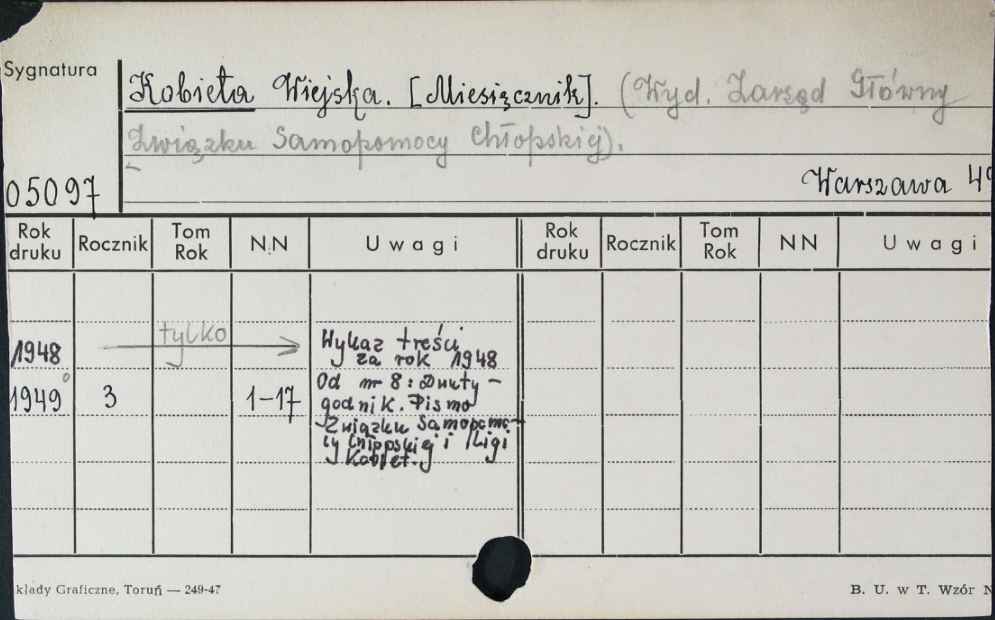 Sygnatura
Kobieta Wiejska. [Miesięcznik]. (Wyd. Zarząd Główny
Związku Samopomocy Chłopskiej).
05097
Warszawa 49
Rok druku Rocznik Tom Rok N.N Uwagi Rok druku Rocznik Tom Rok NN Uwagi
1948 tylko Wykaz treści
za rok 1948
1949 3 1-17 Od nr 8: Dwuty-
godnik. Pismo
Związku Samopomo-
cy Chłopskiej i Ligi
Kobiet.
klady Graficzne, Toruń — 249-47
B. U. w T. Wzór N